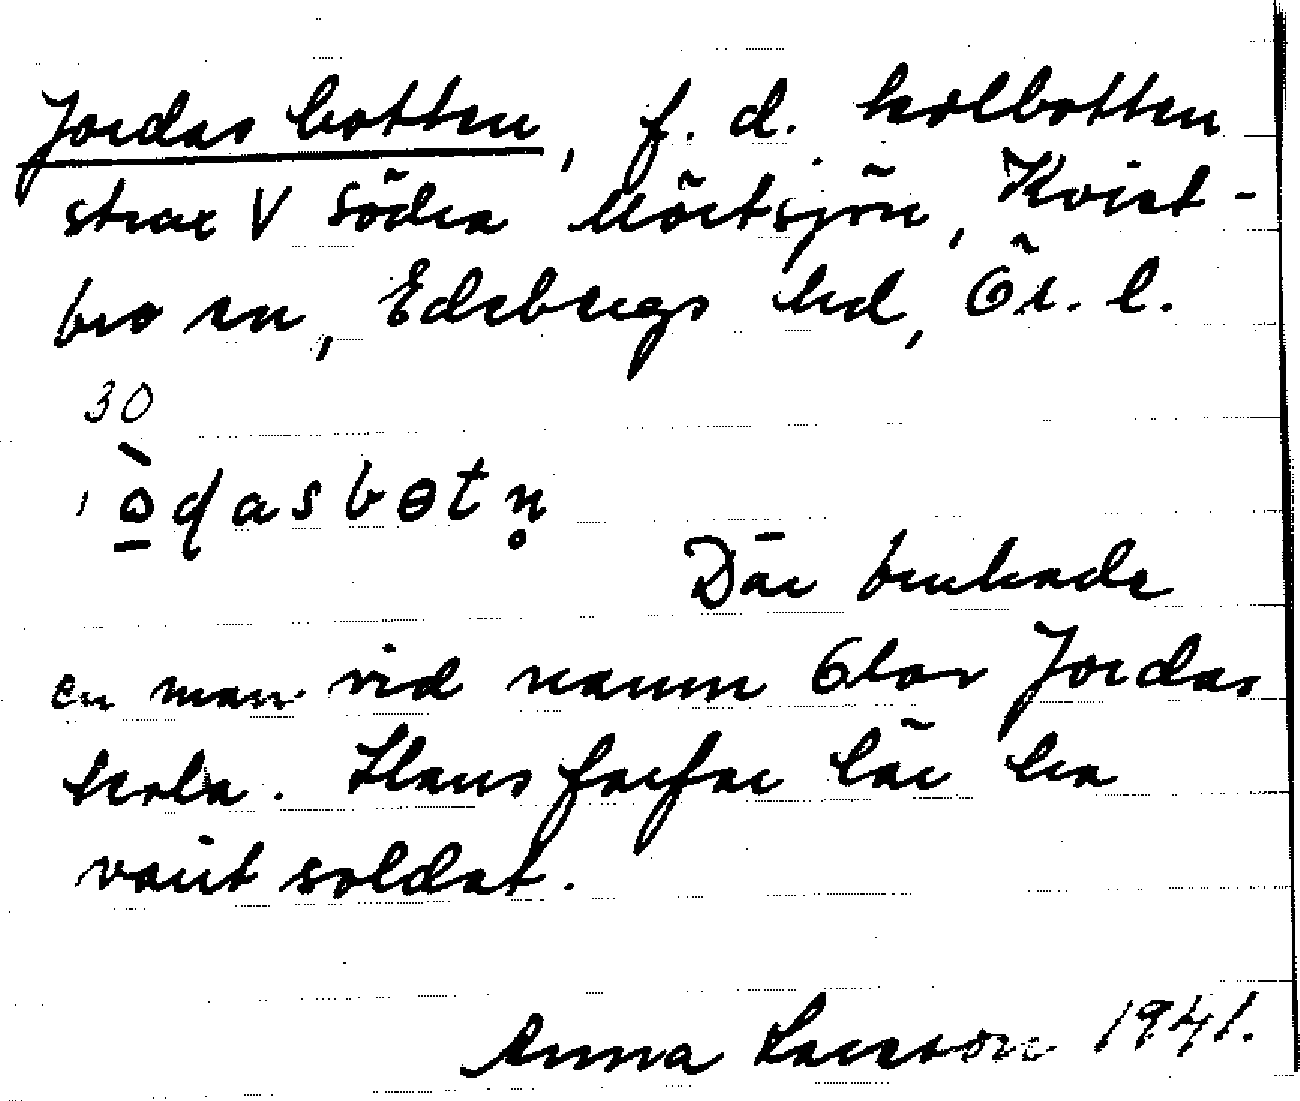 Jordas botten, f. d. kolbotten
strax V Södra Mörtsjön, Kvist-
bro sn, Edsbergs hd, Ör. l.
30
ò̱ɖasbɵtn̥
Där brukade
en man vid namn Olov Jordas
kola. Hans farfar lär ha
varit soldat.
Anna Larsson 1941.